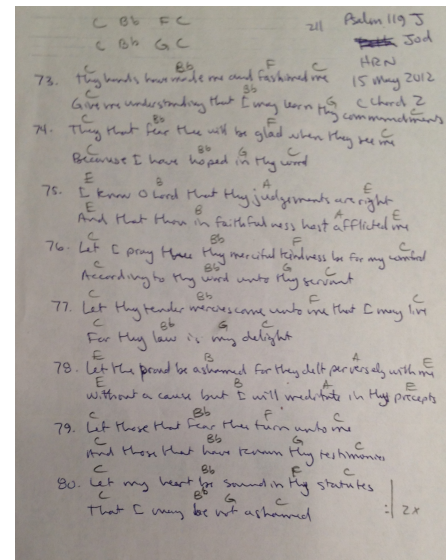 C Bb F C 211 Psalm 119 J
C Bb G C Jod
HRN
C Bb F C 15 May 2012
73. Thy hands have made me and fashioned me
Bb G C Chord 2
Give me understanding that I may learn thy commandments
C Bb F C
74. They that fear thee will be glad when they see me
C Bb G C
Because I have hoped in thy word
E B A E
75. I know O Lord that thy judgements are right
E B A E
And that thou in faithfulness hast afflicted me
C Bb F C
76. Let I pray thee thy merciful kindness be for my comfort
C Bb G C
According to thy word unto thy servant
C Bb F C
77. Let thy tender mercies come unto me that I may live
C Bb G C
For thy law is my delight
E B A E
78. Let the proud be ashamed for they delt perversely with me
E B A E
Without a cause but I will meditate in thy precepts
C Bb F C
79. Let those that fear thee turn unto me
C Bb G C
And those that have known thy testimonies
C Bb F C
80. Let my heart be sound in thy statutes
C Bb G C
That I may be not ashamed :| 2x